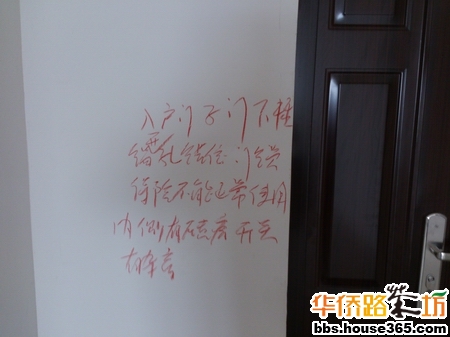 入户门子门下插
销孔错位 门锁
保险不能正常使用
内侧有磕磨 开关
有杂音
华侨路茶坊
bbs.house365.com